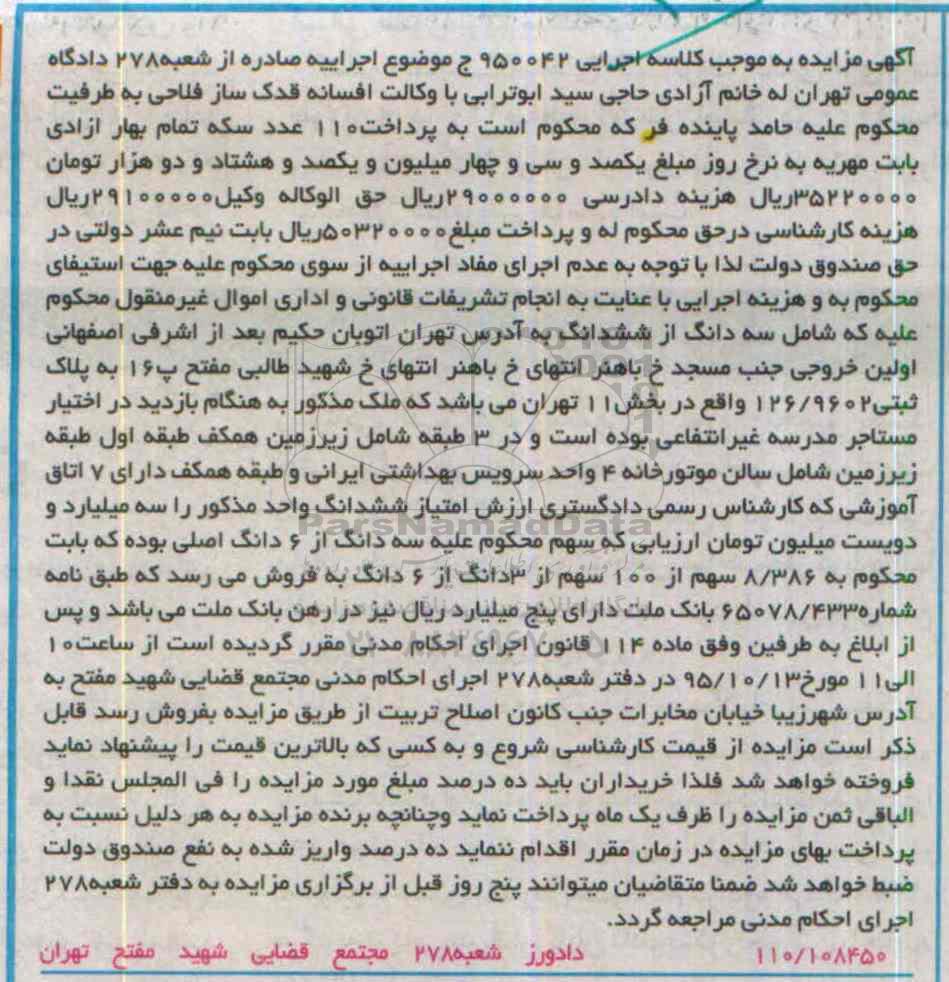 آگهی مزایده به موجب کلاسه اجرایی ۹۵۰۰۴۲ ج موضوع اجراییه صادره از شعبه۲۷۸ دادگاه
عمومی تهران له خانم آزادی حاجی سید ابوترابی با وکالت افسانه قدک ساز فلاحی به طرفیت
محکوم علیه حامد پاینده فر که محکوم است به پرداخت۱۱۰ عدد سکه تمام بهار ازادی
بابت مهریه به نرخ روز مبلغ یکصد و سی و چهار میلیون و یکصد و هشتاد و دو هزار تومان
۳۵۲۲۰۰۰۰ریال هزینه دادرسی ۲۹۰۰۰۰۰۰ریال حق الوکاله وکیل۲۹۱۰۰۰۰۰ریال
هزینه کارشناسی درحق محکوم له و پرداخت مبلغ۵۰۳۲۰۰۰۰ریال بابت نیم عشر دولتی در
حق صندوق دولت لذا با توجه به عدم اجرای مفاد اجراییه از سوی محکوم علیه جهت استیفای
محکوم به و هزینه اجرایی با عنایت به انجام تشریفات قانونی و اداری اموال غیرمنقول محکوم
علیه که شامل سه دانگ از ششدانگ به آدرس تهران اتوبان حکیم بعد از اشرفی اصفهانی
اولین خروجی جنب مسجد خ باهنر انتهای خ باهنر انتهای خ شهید طالبی مفتح پ۱۶ به پلاک
ثبتی۱۲۶/۹۶۰۲ واقع در بخش۱۱ تهران می باشد که ملک مذکور به هنگام بازدید در اختیار
مستاجر مدرسه غیرانتفاعی بوده است و در ۳ طبقه شامل زیرزمین همکف طبقه اول طبقه
زیرزمین شامل سالن موتورخانه ۴ واحد سرویس بهداشتی ایرانی و طبقه همکف دارای ۷ اتاق
آموزشی که کارشناس رسمی دادگستری ارزش امتیاز ششدانگ واحد مذکور را سه میلیارد و
دویست میلیون تومان ارزیابی که سهم محکوم علیه سه دانگ از ۶ دانگ اصلی بوده که بابت
محکوم به ۸/۳۸۶ سهم از ۱۰۰ سهم از ۳دانگ از ۶ دانگ به فروش می رسد که طبق نامه
شماره۶۵۰۷۸/۴۳۳ بانک ملت دارای پنج میلیارد ریال نیز در رهن بانک ملت می باشد و پس
از ابلاغ به طرفین وفق ماده ۱۱۴ قانون اجرای احکام مدنی مقرر گردیده است از ساعت۱۰
الی۱۱ مورخ۹۵/۱۰/۱۳ در دفتر شعبه۲۷۸ اجرای احکام مدنی مجتمع قضایی شهید مفتح به
آدرس شهرزیبا خیابان مخابرات جنب کانون اصلاح تربیت از طریق مزایده بفروش رسد قابل
ذکر است مزایده از قیمت کارشناسی شروع و به کسی که بالاترین قیمت را پیشنهاد نماید
فروخته خواهد شد فلذا خریداران باید ده درصد مبلغ مورد مزایده را فی المجلس نقدا و
الباقی ثمن مزایده را ظرف یک ماه پرداخت نماید وچنانچه برنده مزایده به هر دلیل نسبت به
پرداخت بهای مزایده در زمان مقرر اقدام ننماید ده درصد واریز شده به نفع صندوق دولت
ضبط خواهد شد ضمنا متقاضیان میتوانند پنج روز قبل از برگزاری مزایده به دفتر شعبه۲۷۸
اجرای احکام مدنی مراجعه گردد.
۱۱۰/۱۰۸۴۵۰ دادورز شعبه۲۷۸ مجتمع قضایی شهید مفتح تهران
ParsNamadData